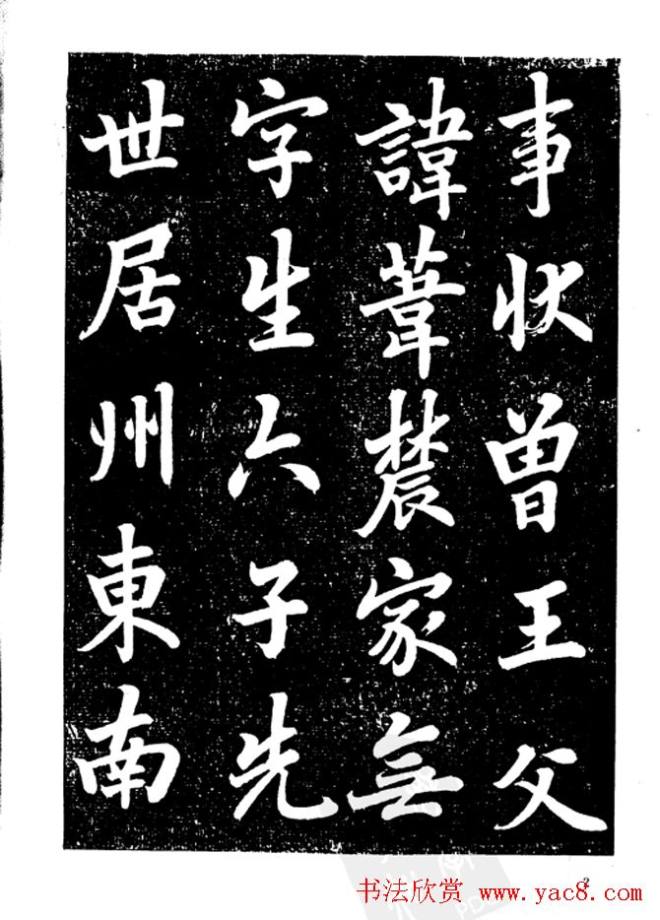 事状曽王父
諱葦辳家無
字生六子先
世居州東南
2
书法欣赏 www.yac8.com